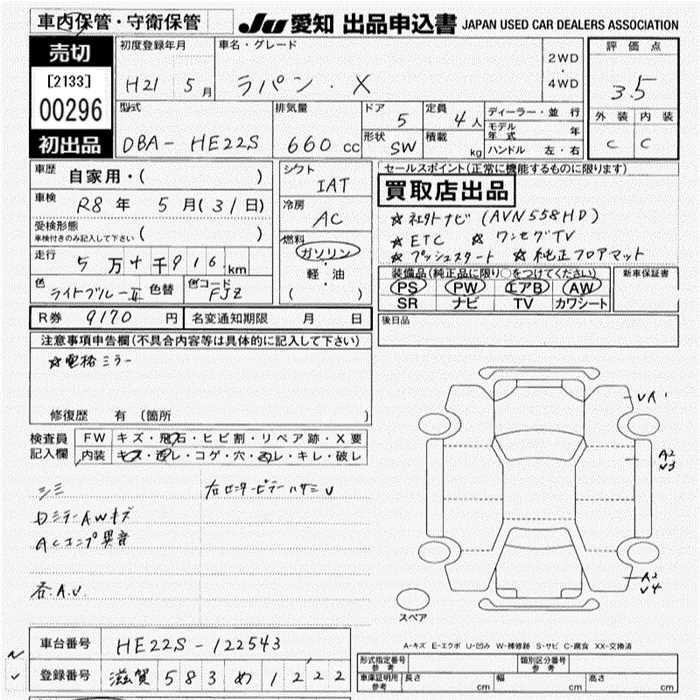 車内保管・守衛保管
JU 愛知 出品申込書 JAPAN USED CAR DEALERS ASSOCIATION
売切
[2133]
00296
初出品
初度登録年月
H21 5月
車名・グレード
ラパン ・ X
2WD
・
4WD
評価点
3.5
外装 内装
C C
型式
DBA- HE22S
排気量
660 cc
ドア
5
定員
4人
形状
SW
積載
kg
ディーラー・並行
モデル年式 年
ハンドル 左・右
車歴
自家用・( )
車検
R8年 5月(31日)
受検形態
車検付きのみ記入して下さい ( )
走行
5万4千916km
色
ライトブルーⅡ
色替
色コード
FJZ
シフト
IAT
冷房
AC
燃料
ガソリン
・
軽・油
( )
セールスポイント(正常に機能するものに限ります)
買取店出品
☆社外ナビ(AVN558HD)
☆ETC ☆ワンセグTV
☆プッシュスタート ☆純正フロアマット
装備品(純正品に限り〇をつけてください)
PS PW エアB AW
SR ナビ TV カワシート
新車保証書
後日品
R券 9170円
名変通知期限 月 日
注意事項申告欄(不具合内容等は具体的に記入して下さい)
☆電格ミラー
修復歴 有 (箇所 )
検査員
記入欄
FW キズ・飛石・ヒビ割・リペア跡・X要
内装 キズ・汚レ・コゲ・穴・凹レ・キレ・破レ
シミ
右センターピラーハサミU
DミラーAWキズ
ACコンプ異音
各A.U.
UA1
A2
U3
A2
U4
スペア
A-キズ E-エクボ U-凹み W-補修跡 S-サビ C-腐食 XX-交換済
車台番号
HE22S-122543
登録番号
滋賀583め1222
形式指定番号
参考
類別区分番号
参考
車庫証明用
参考
長さ cm
幅 cm
高さ cm